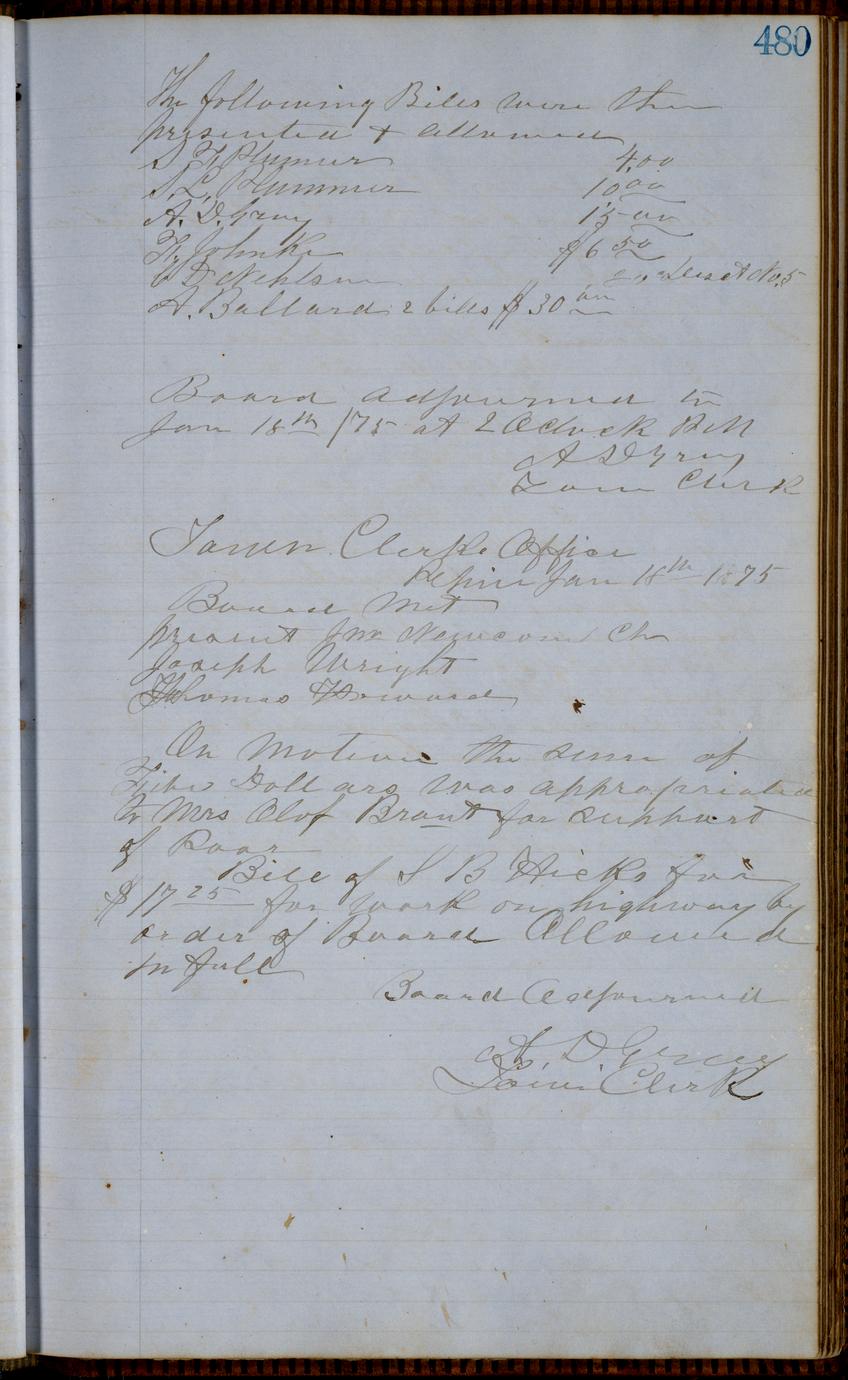 480
The following Bills were then
presented & allowed
S. F. Plumer 4.00
S. L. Plummer 10 00
A. D. Gray 15 00
F. Johnke $6 50
C D
A. Ballard 2 bills $30 00
Board adjourned to
Jan 18th /75 at 2 Oclock PM
A D Gray
Town Clerk
Town Clerks Office
Pepin Jan 18th 1875
Board Met
present Jno Newcomb Ch
Joseph Wright
Thomas Howard
On Motion the sum of
Five Dollars was appropriated
to Mrs Olof Brant for support
of Poor
Bill of S B Hicks for
$17 25 for work on highway by
order of Board Allowed
in full
Board Adjourned
A. D Gray
Town Clerk